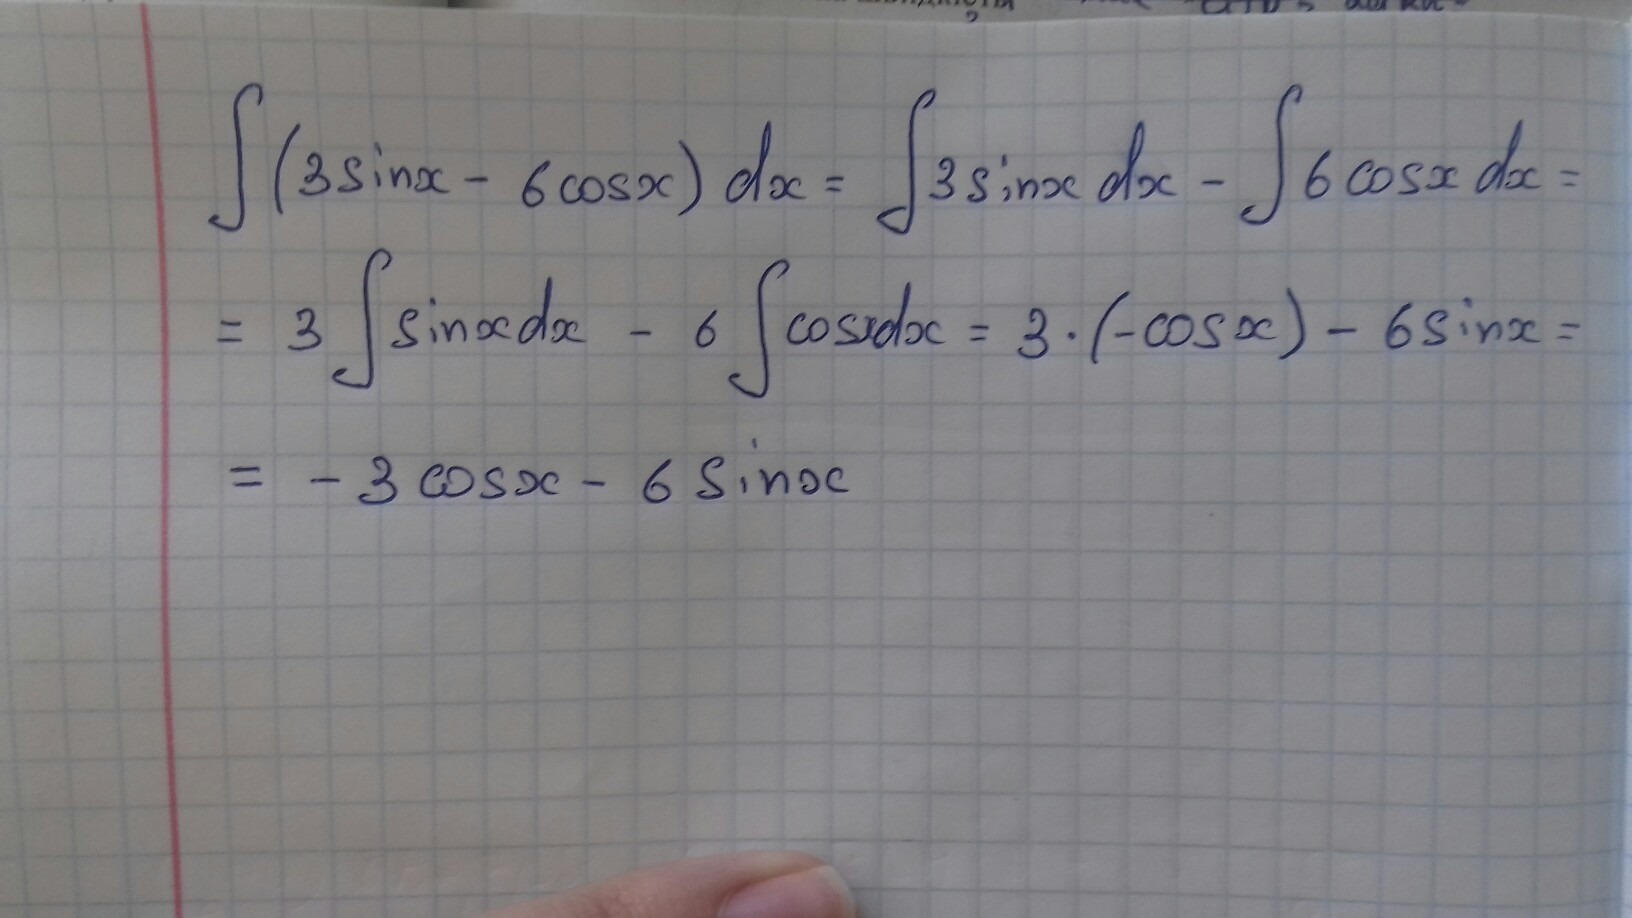 ∫(3sinx - 6cosx) dx = ∫3sinx dx - ∫6cosx dx =
= 3∫sinxdx - 6∫cosxdx = 3·(-cosx) - 6sinx =
= -3cosx - 6sinx